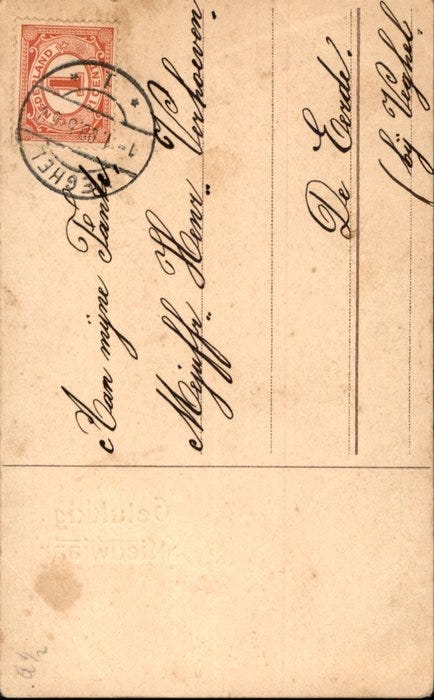 Aan mijne Tante,
Mejuffr. Henr. Verhoeven.
De Eerde.
(bij Veghel.
NEDERLAND
1
VEGHEL
Gelukkig
Nieuwjaar
a 1/2